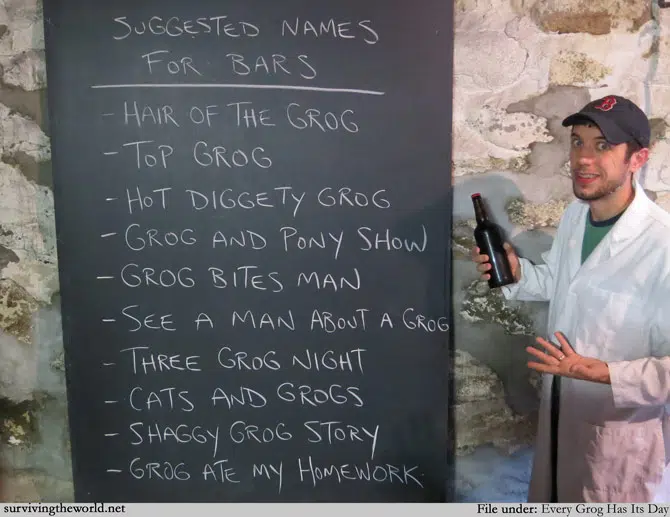 SUGGESTED NAMES
FOR BARS
- HAIR OF THE GROG
- TOP GROG
- HOT DIGGETY GROG
- GROG AND PONY SHOW
- GROG BITES MAN
- SEE A MAN ABOUT A GROG
- THREE GROG NIGHT
- CATS AND GROGS
- SHAGGY GROG STORY
- GROG ATE MY HOMEWORK
B
survivingtheworld.net
File under: Every Grog Has Its Day